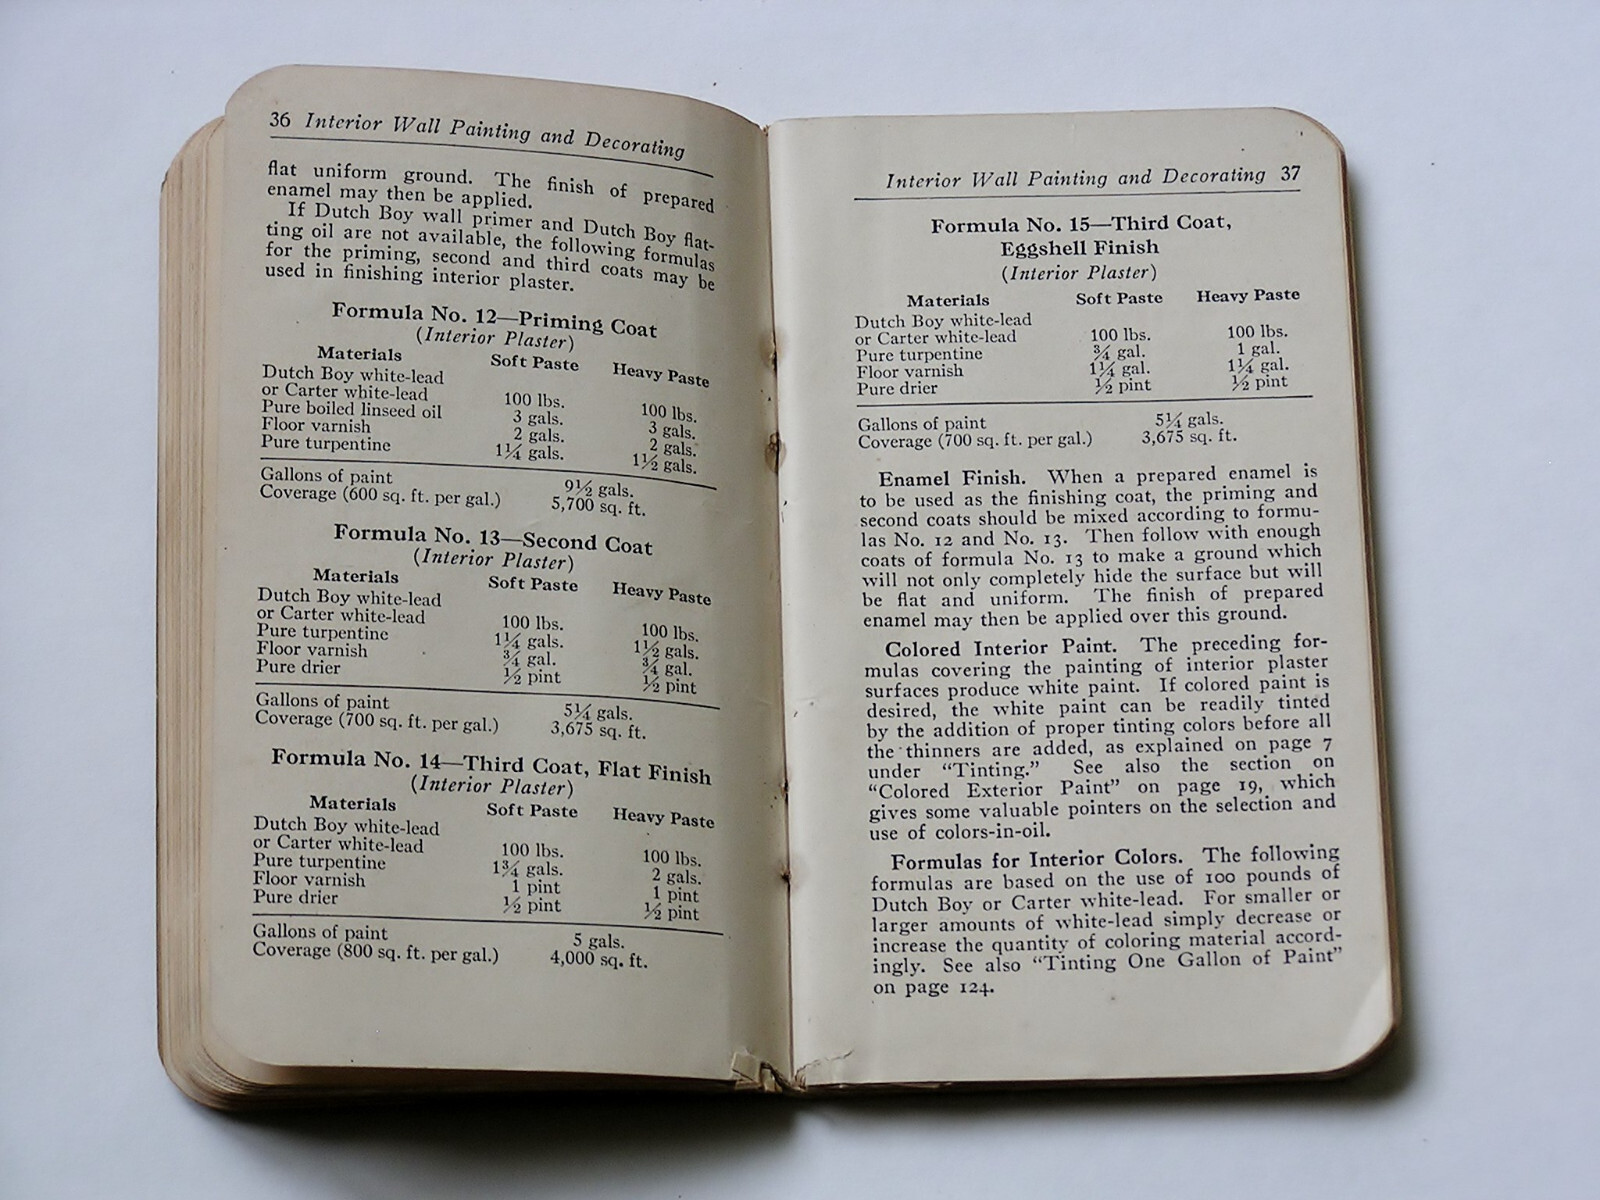 36 Interior Wall Painting and Decorating
flat uniform ground. The finish of prepared
enamel may then be applied.
If Dutch Boy wall primer and Dutch Boy flat-
ting oil are not available, the following formulas
for the priming, second and third coats may be
used in finishing interior plaster.
Formula No. 12—Priming Coat
(Interior Plaster)
Materials Soft Paste Heavy Paste
Dutch Boy white-lead
or Carter white-lead 100 lbs. 100 lbs.
Pure boiled linseed oil 3 gals. 3 gals.
Floor varnish 2 gals. 2 gals.
Pure turpentine 1¼ gals. 1½ gals.
Gallons of paint 9½ gals.
Coverage (600 sq. ft. per gal.) 5,700 sq. ft.
Formula No. 13—Second Coat
(Interior Plaster)
Materials Soft Paste Heavy Paste
Dutch Boy white-lead
or Carter white-lead 100 lbs. 100 lbs.
Pure turpentine 1¼ gals. 1½ gals.
Floor varnish ¾ gal. ¾ gal.
Pure drier ½ pint ½ pint
Gallons of paint 5¼ gals.
Coverage (700 sq. ft. per gal.) 3,675 sq. ft.
Formula No. 14—Third Coat, Flat Finish
(Interior Plaster)
Materials Soft Paste Heavy Paste
Dutch Boy white-lead
or Carter white-lead 100 lbs. 100 lbs.
Pure turpentine 1¾ gals. 2 gals.
Floor varnish 1 pint 1 pint
Pure drier ½ pint ½ pint
Gallons of paint 5 gals.
Coverage (800 sq. ft. per gal.) 4,000 sq. ft.
Interior Wall Painting and Decorating 37
Formula No. 15—Third Coat,
Eggshell Finish
(Interior Plaster)
Materials Soft Paste Heavy Paste
Dutch Boy white-lead
or Carter white-lead 100 lbs. 100 lbs.
Pure turpentine ¾ gal. 1 gal.
Floor varnish 1¼ gal. 1¼ gal.
Pure drier ½ pint ½ pint
Gallons of paint 5¼ gals.
Coverage (700 sq. ft. per gal.) 3,675 sq. ft.
Enamel Finish. When a prepared enamel is
to be used as the finishing coat, the priming and
second coats should be mixed according to formu-
las No. 12 and No. 13. Then follow with enough
coats of formula No. 13 to make a ground which
will not only completely hide the surface but will
be flat and uniform. The finish of prepared
enamel may then be applied over this ground.
Colored Interior Paint. The preceding for-
mulas covering the painting of interior plaster
surfaces produce white paint. If colored paint is
desired, the white paint can be readily tinted
by the addition of proper tinting colors before all
the thinners are added, as explained on page 7
under “Tinting.” See also the section on
“Colored Exterior Paint” on page 19, which
gives some valuable pointers on the selection and
use of colors-in-oil.
Formulas for Interior Colors. The following
formulas are based on the use of 100 pounds of
Dutch Boy or Carter white-lead. For smaller or
larger amounts of white-lead simply decrease or
increase the quantity of coloring material accord-
ingly. See also “Tinting One Gallon of Paint”
on page 124.